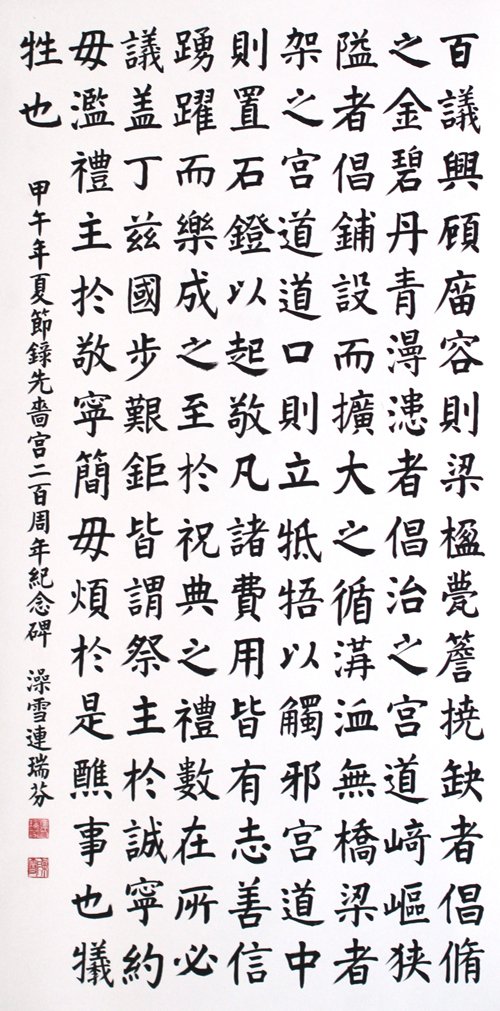 百議興頋庿容則梁楹甍簷撓缺者倡脩
之金碧丹青漫漶者倡治之宮道﨑嶇狹
隘者倡鋪設而擴大之循溝洫無橋梁者
架之宮道道口則立牴牾以觸邪宮道中
則置石鐙以起敬凡諸費用皆有志善信
踴躍而樂成之至於祝典之禮數在所必
議盖丁茲國步艱鉅皆謂祭主於誠寧約
毋濫禮主於敬寧簡毋煩於是醮事也犧
牲也
甲午年夏節錄先嗇宮二百周年紀念碑 澡雪連瑞芬